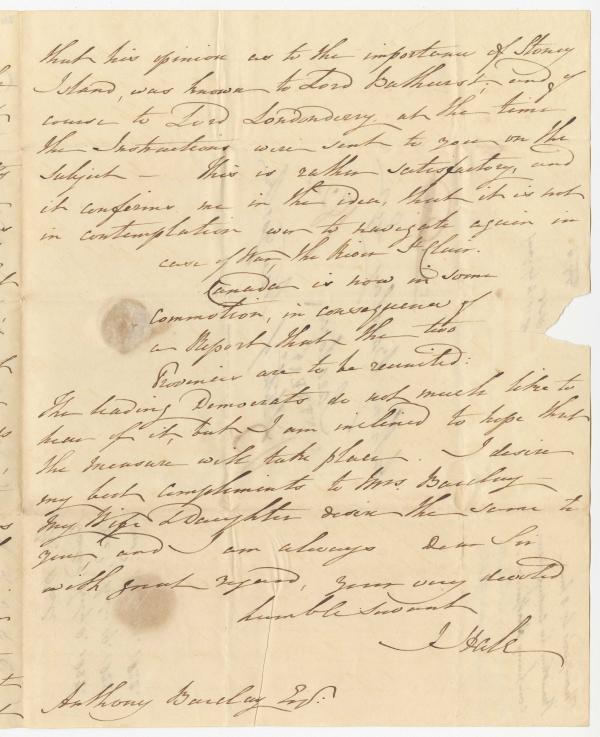 that his opinion as to the importance of Stoney
Island, was known to Lord Bathurst, and of
course to Lord Londonderry at the time
the Instructions were sent to you on the
Subject — This is rather satisfactory, and
it confirms me in the idea, that it is not
in contemplation ever to navigate again in
case of War, the River St Clair.
Canada is now in some
commotion, in consequence of
a Report that the two
Provinces are to be reunited:
The leading Democrats do not much like to
hear of it, but I am inclined to hope that
the measure will take place. I desire
my best compliments to Mrs. Barclay —
My Wife & Daughter desire the same to
you, and I am always Dear Sir
with great regard, your very devoted
humble servant
J Hale
Anthony Barclay Esqr: